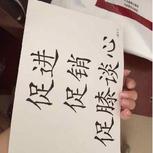 促进
促销
促膝谈心